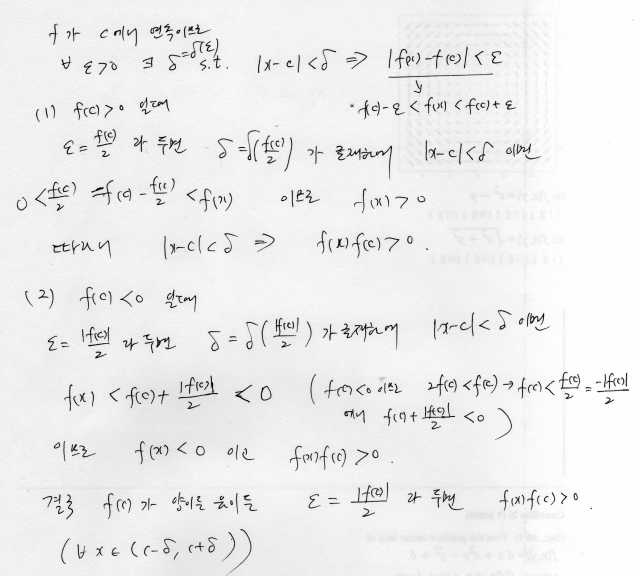 f가 c에서 연속이므로
∀ ε>0 ∃ δ=δ(ε) s.t. |x-c|<δ ⇒ |f(x)-f(c)|<ε
↓
(1) f(c)>0 일때 f(c)-ε < f(x) < f(c)+ε
ε = f(c)/2 라 두면 δ=δ(f(c)/2) 가 존재하여 |x-c|<δ 이면
0 < f(c)/2 = f(c) - f(c)/2 < f(x) 이므로 f(x)>0
따라서 |x-c|<δ ⇒ f(x)f(c)>0.
(2) f(c)<0 일때
ε = |f(c)|/2 라 두면 δ = δ(|f(c)|/2) 가 존재하여 |x-c|<δ 이면
f(x) < f(c) + |f(c)|/2 < 0 ( f(c)<0 이므로 2f(c)<f(c) → f(c) < f(c)/2 = -|f(c)|/2
에서 f(c) + |f(c)|/2 < 0 )
이므로 f(x)<0 이고 f(x)f(c)>0.
결국 f(c)가 양이든 음이든 ε = |f(c)|/2 라 두면 f(x)f(c)>0.
(∀ x ∈ (c-δ, c+δ))